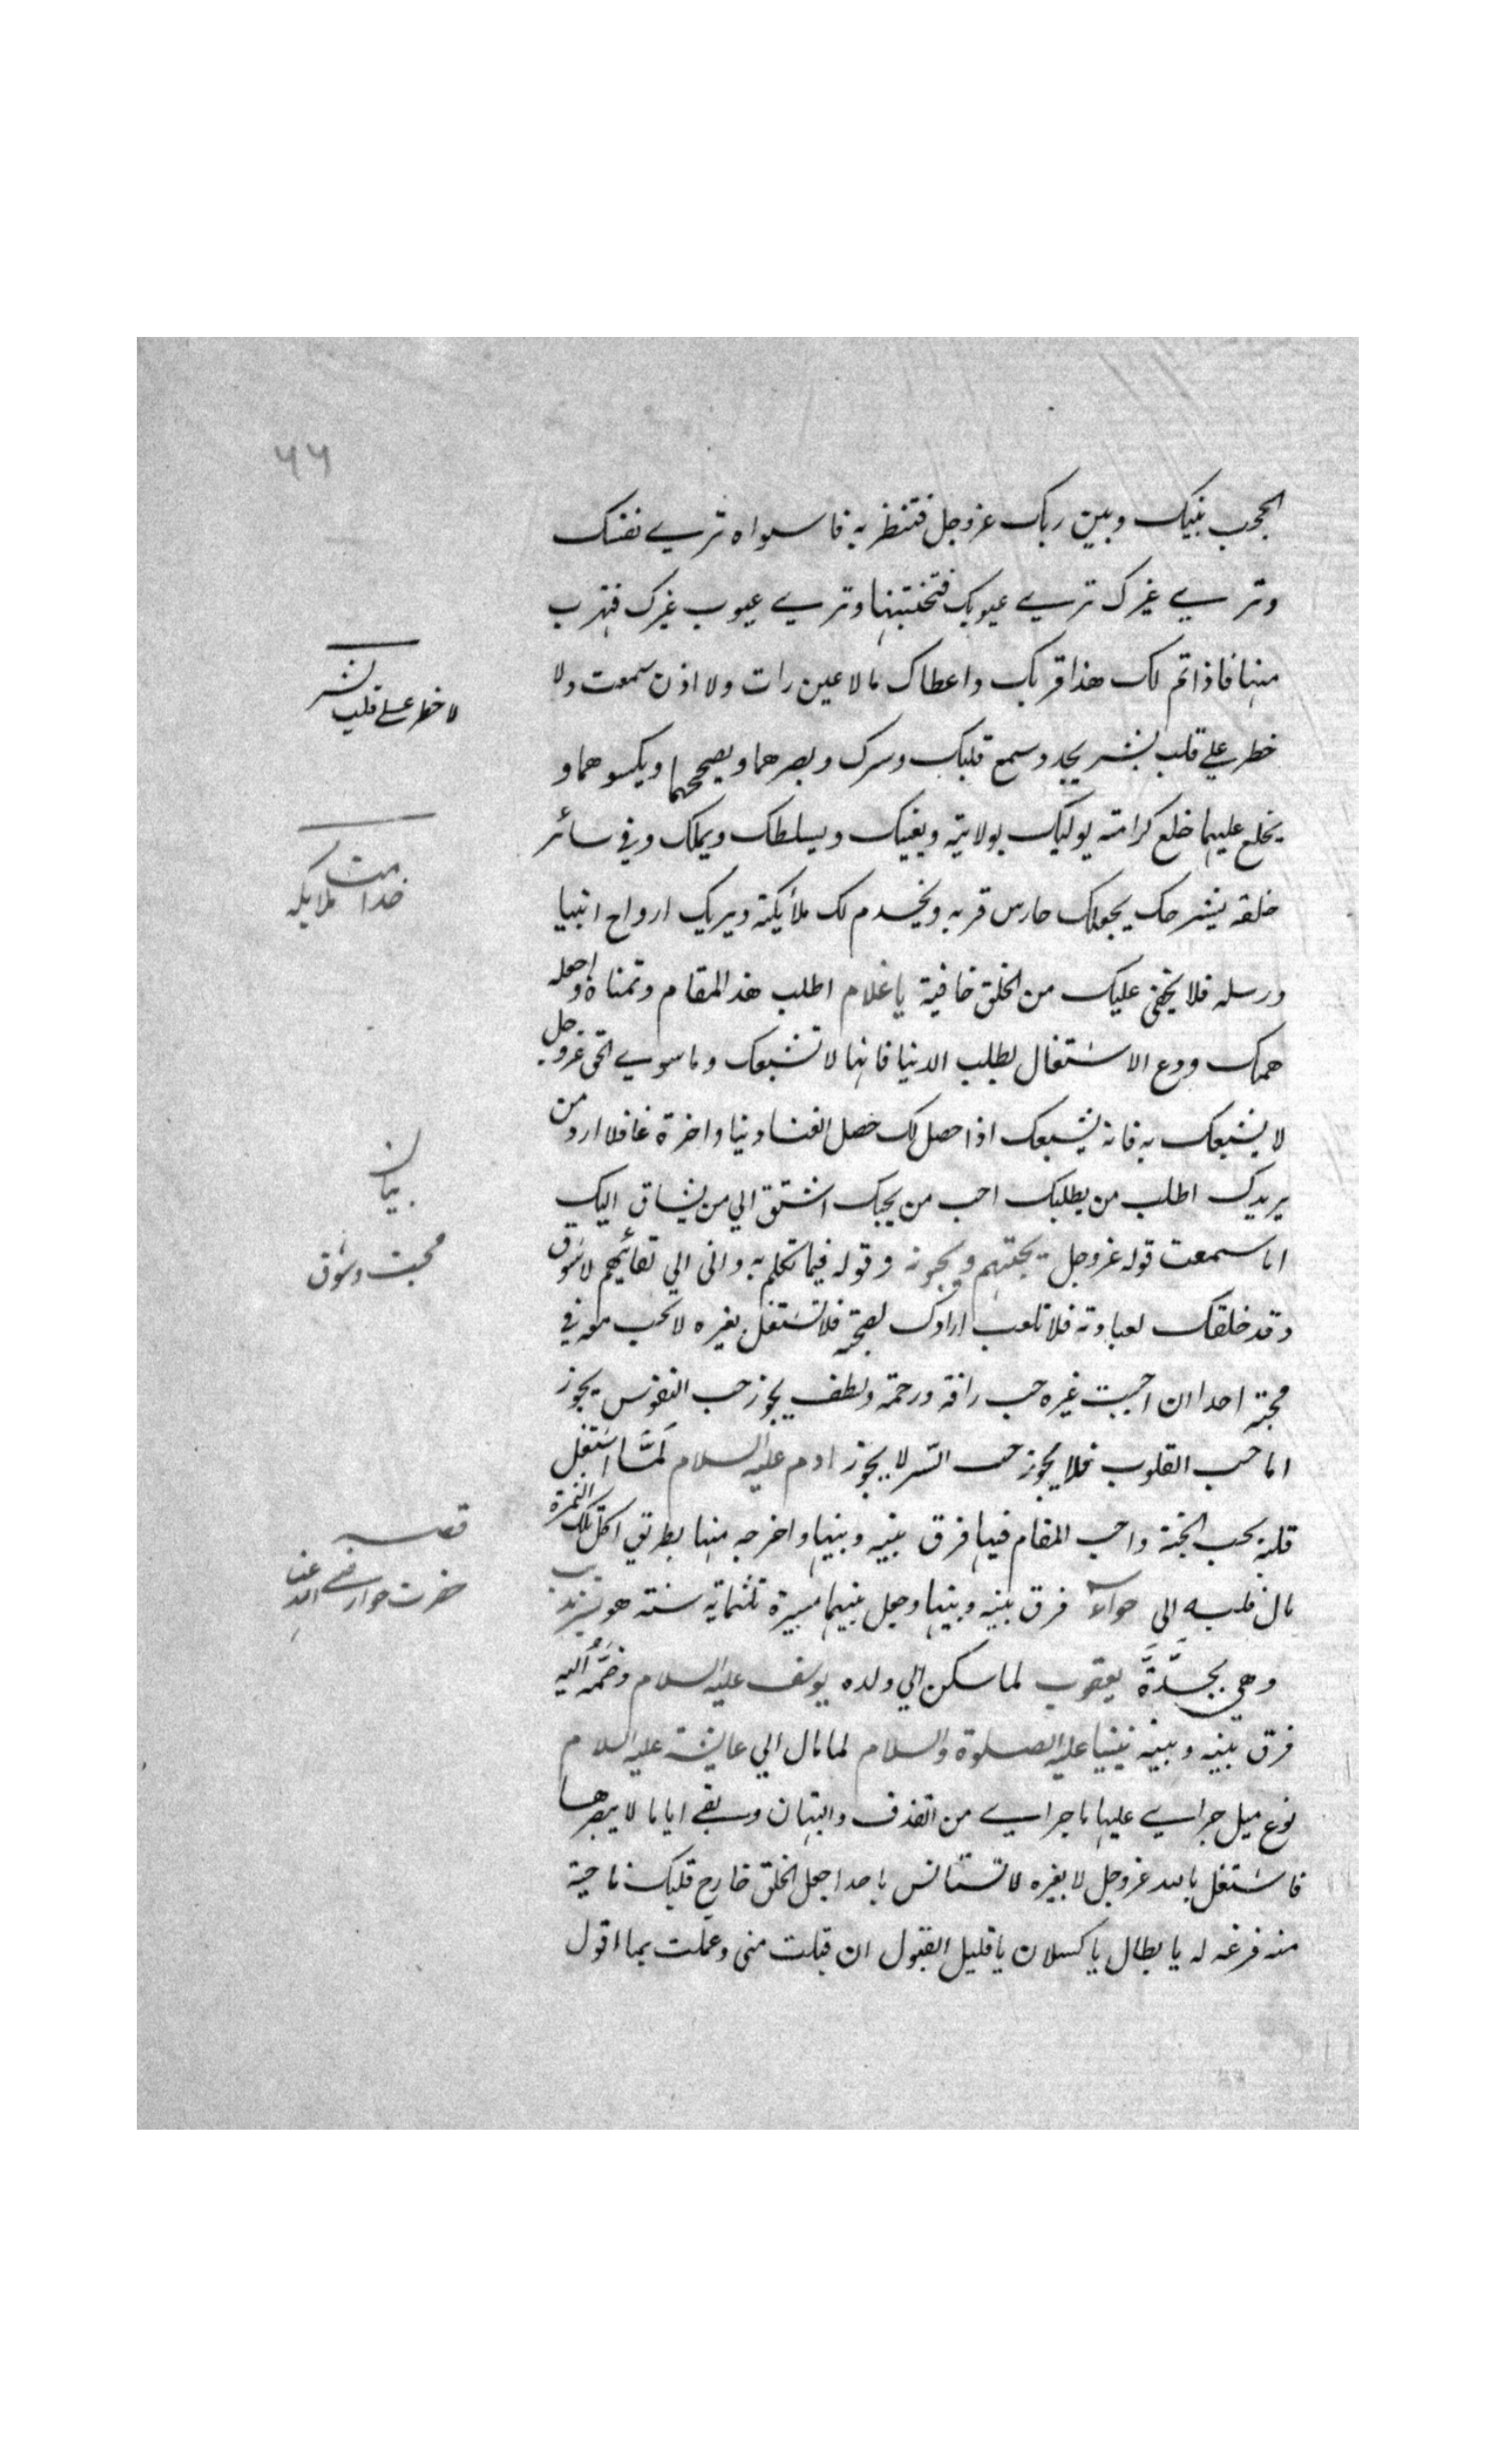 ٦٦
الحجب بينك وبين ربك عزوجل فتنظر به فاسواه ترے نفسك
وترے غيرك ترے عيوبك فتجنبتها وترے عيوب غيرك فتهرب
منها فاذا تم لك هذا قربك واعطاك مالا عين رات ولا اذن سمعت ولا
خطر علي قلب بشر يجدد سمع قلبك وسرك وبصرهما ويصححهما ويكسوهما و
يخلع عليهما خلع كرامته يوليك بولايته ويغنيك ويسلطك ويملك وفي سائر
خلقه يشرحك يجعلك حارس قربه ويخدم لك ملأيكته ويريك ارواح انبيا
ورسله فلا يخفي عليك من الخلق خافية يا غلام اطلب هذ المقام وتمناه واجعله
همك ودع الاشتغال بطلب الدنيا فانها لا تشبعك وما سوي الحق عزوجل
لا يشبعك به فانه يشبعك اذا حصل لك حصل الغنا دنيا واخرة غافلا ارد من
يريدك اطلب من يطلبك احب من يحبك اشتق الي من يشاق اليك
اما سمعت قوله عزوجل يحبهم ويحبونه وقوله فيما تكلم به واني الي لقائهم لاشوق
وقد خلقك لعبادته فلا تلعب ارادك لصحبته فلا تشتغل بغيره لا تحب معه في
محبته احدا ان احببت غيره حب رافة ورحمة ولطف يجوز حب النفوس يجوز
اما حب القلوب فلا يجوز حب السّر لا يجوز ادم عليه السلام لمّا اشتغل
قلبه بحب الجنة واحب المقام فيها فرق بينه وبينها واخرجه منها بطريق اكل تلك الثمرة
مال قلبه الي حوآء فرق بينه وبينها وجعل بينهما مسيرة ثلثماية سنة هو بسرنديب
وهي بجدّة يعقوب لما سكن الي ولده يوسف عليه السلام وضمّه اليه
فرق بينه وبينه نبينا عليه الصلوة والسلام لما مال الي عايشة عليه السلام
نوع ميل جراے عليها ما جراے من القذف والبهتان وبقے اياما لا يبصرها
فاشتغل بالله عزوجل لا بغيره لا تستانس باحد اجعل الخلق خارج قلبك ناحية
منه فرغه له يا بطال يا كسلان يا قليل القبول ان قبلت مني وعملت بما اقول
لا خطر علے قلب بشر
خدامت ملايكه
بيان
محبت وشوق
قصه
حضرت حوا رضے الله عنها